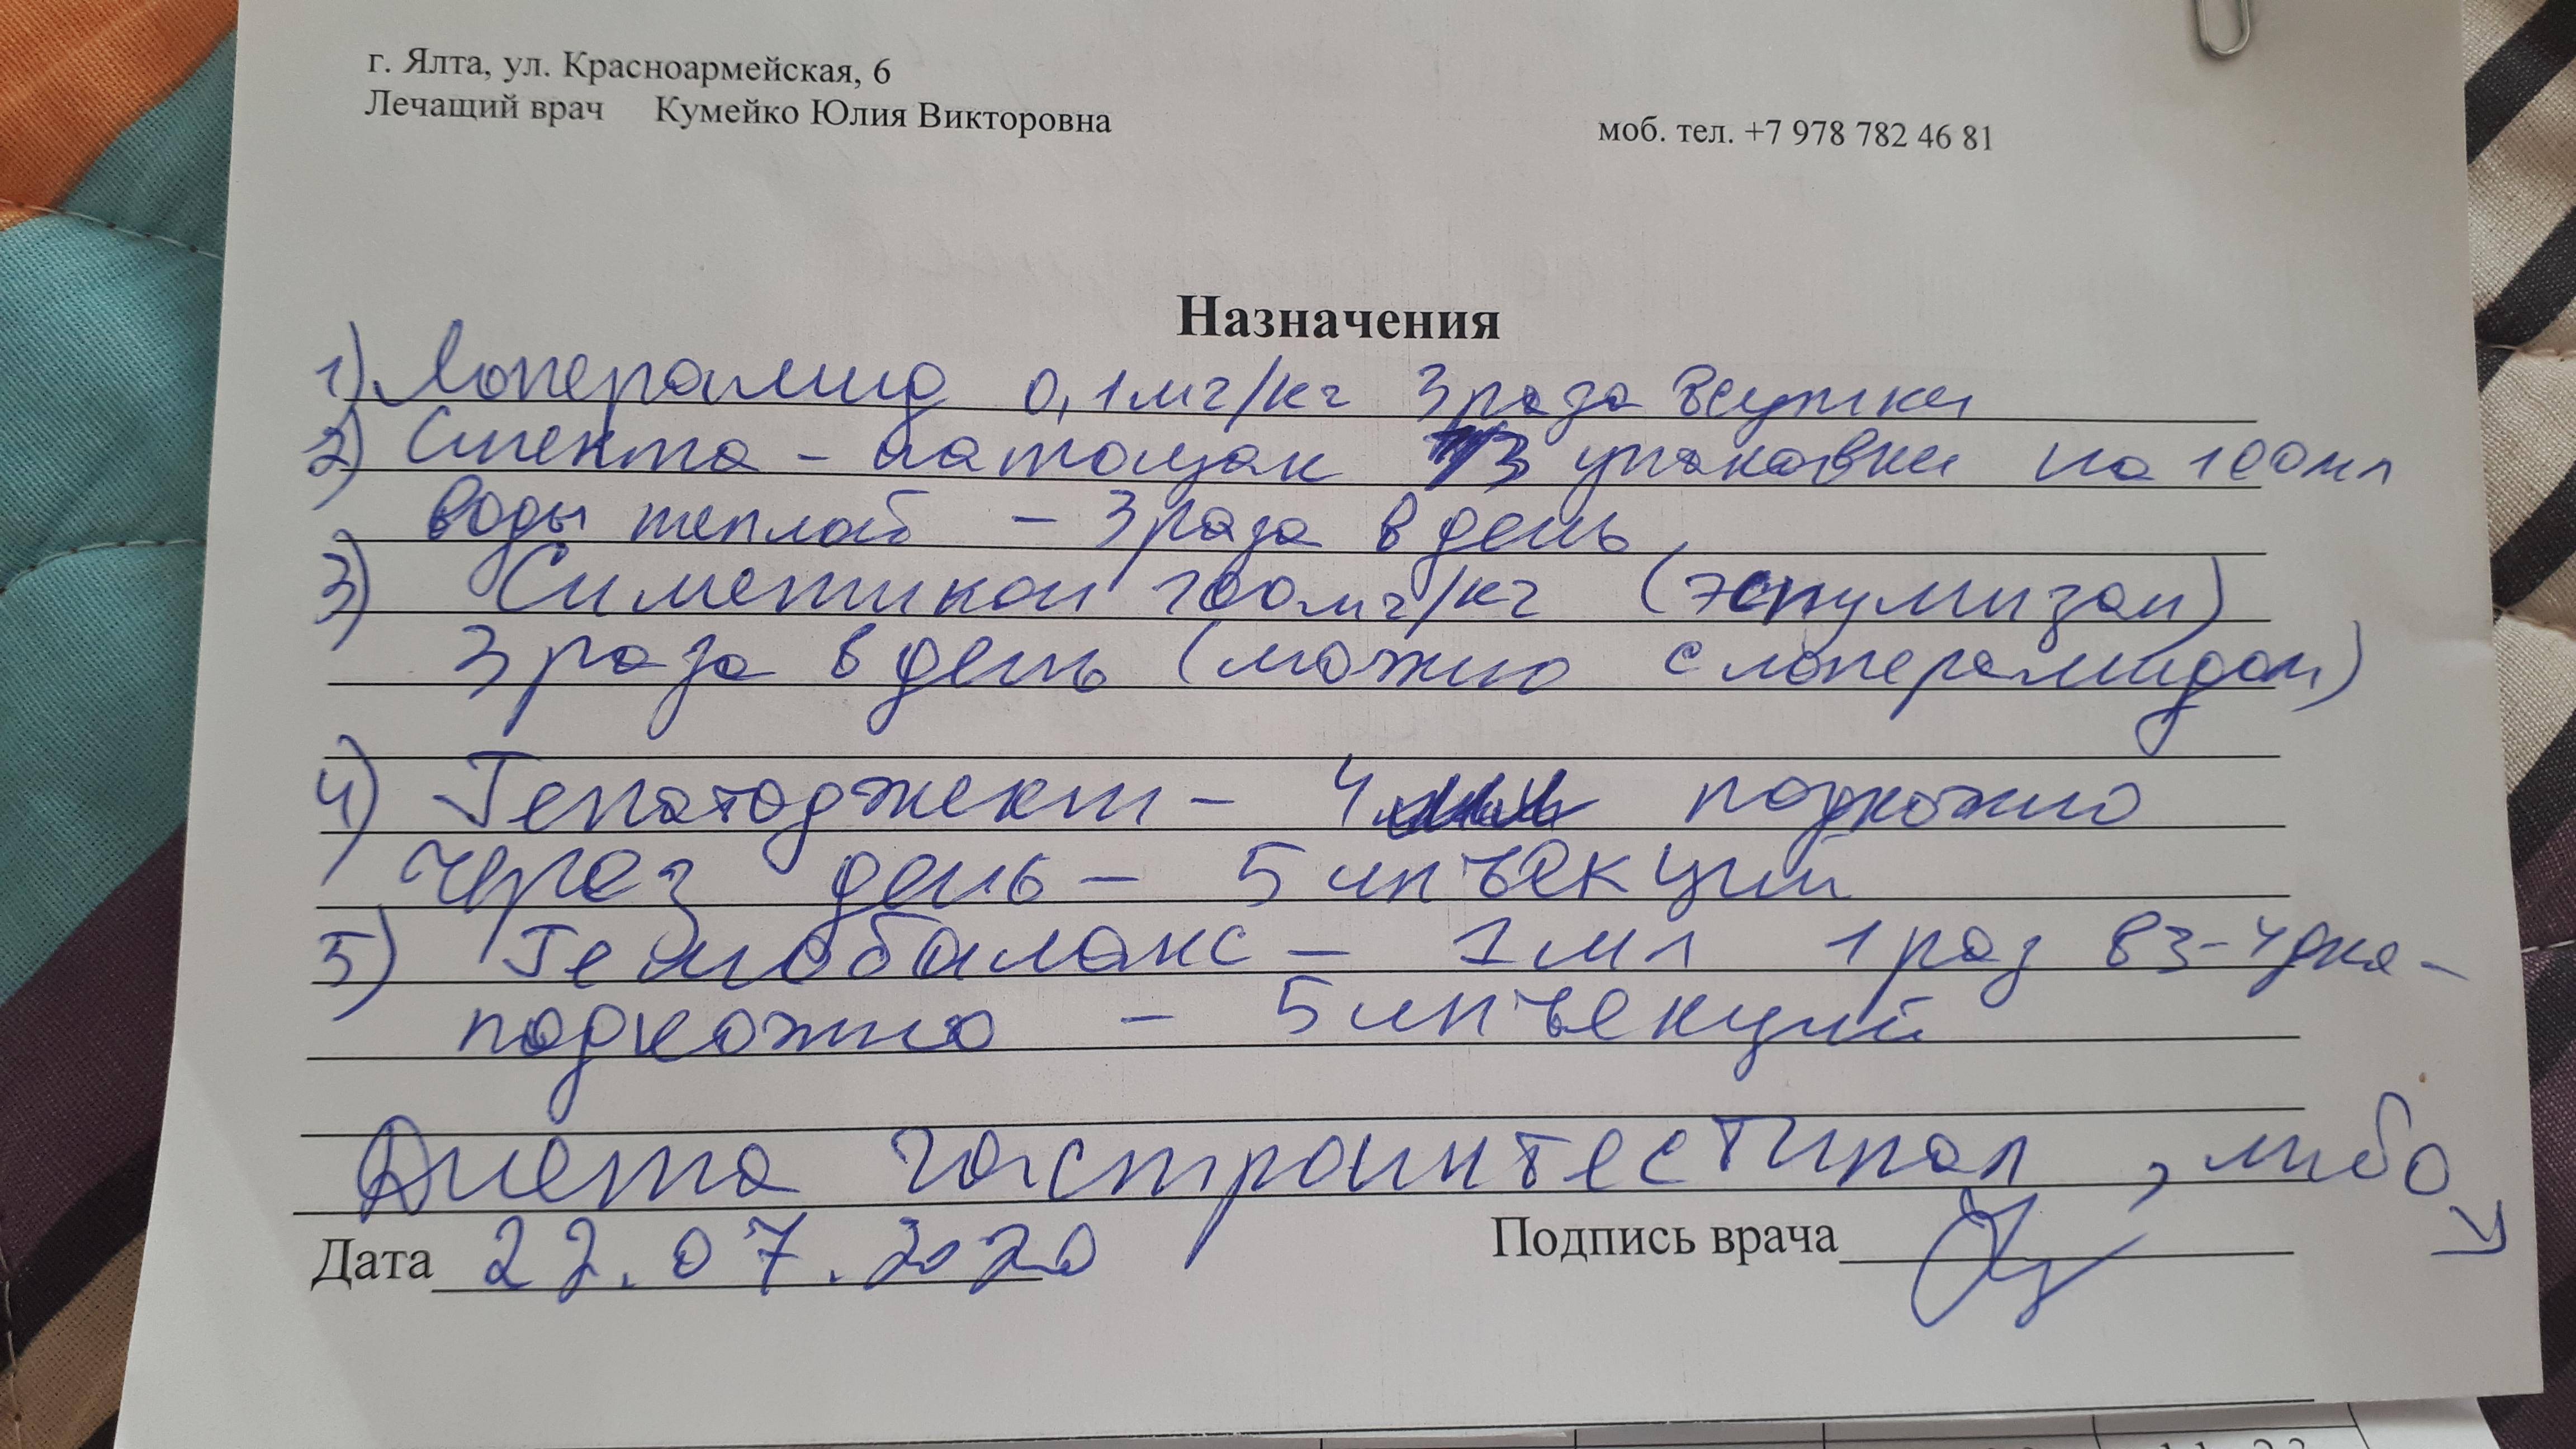 г. Ялта, ул. Красноармейская, 6
Лечащий врач Кумейко Юлия Викторовна моб. тел. +7 978 782 46 81
Назначения
1) Лоперамид 0,1мг/кг 3 раза в сутки
2) Смекта - натощак 1/3 упаковки на 100мл
воды теплой - 3 раза в день
3) Симетикон 100мг/кг (эспумизан)
3 раза в день (можно с лоперамидом)
4) Гепатоджект - 4 подкожно
через день - 5 инъекций
5) Гемобаланс - 1мл 1 раз в 3-4 дня -
подкожно - 5 инъекций
Диета гастроинтестинал, либо
Дата 22.07.2020 Подпись врача